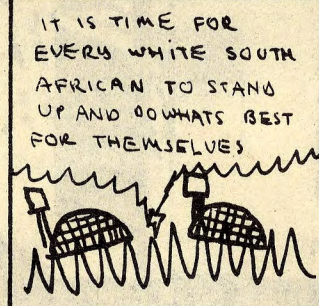 IT IS TIME FOR
EVERY WHITE SOUTH
AFRICAN TO STAND
UP AND DO WHATS BEST
FOR THEMSELVES